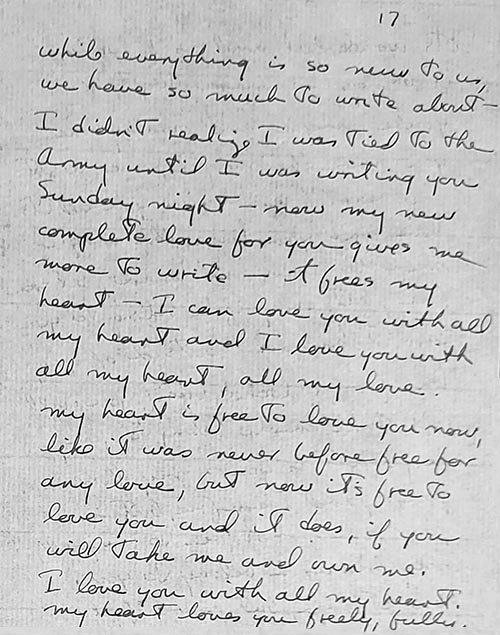 17
while everything is so new to us,
we have so much to write about —
I didn't realize I was tied to the
Army until I was writing you
Sunday night — now my new
complete love for you gives me
more to write — it frees my
heart — I can love you with all
my heart and I love you with
all my heart, all my love.
my heart is free to love you now,
like it was never before free for
any love, but now it's free to
love you and it does, if you
will take me and own me.
I love you with all my heart.
my heart loves you freely, fully.